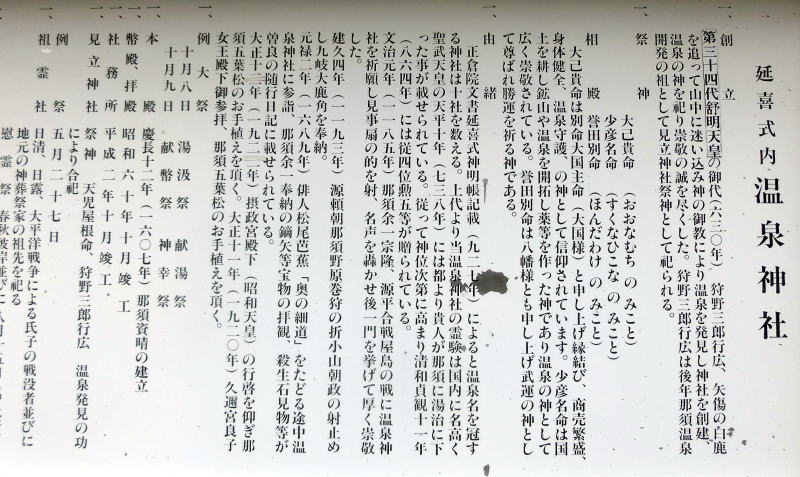 延喜式内 温泉神社
一、創立
第三十四代舒明天皇の御代(六三〇年) 狩野三郎行広、矢傷の白鹿
を追って山中に迷い込み神の御教により温泉を発見し神社を創建、
温泉の神を祀り崇敬の誠を尽くした。狩野三郎行広は後年那須温泉
開発の祖として見立神社祭神として祀られる。
一、祭神
大己貴命 (おおなむち のみこと)
少彦名命 (すくなひこな のみこと)
相殿 誉田別命 (ほんだわけ のみこと)
大己貴命は別命大国主命(大国様)と申し上げ縁結び、商売繁盛、
身体健全、温泉守護、の神として信仰されています。少彦名命は国
土を耕し鉱山や温泉を開拓し薬等を作った神であり温泉の神として
広く崇敬されている。誉田別命は八幡様とも申し上げ武運の神とし
て尊ばれ勝運を祈る神である。
一、由緒
正倉院文書延喜式神明帳記載(九二七年)によると温泉名を冠す
る神社は十社を数える。上代より当温泉神社の霊験は国内に名高く
聖武天皇の天平十年(七三八年)には都より貴人が那須に湯治に下
った事が載せられている。従って神位次第に高まり清和貞観十一年
(八六四年)には従四位勲五等が贈られている。
文治元年(一一八五年)那須余一宗隆、源平合戦屋島の戦に温泉神
社を祈願し見事扇の的を射、名声を轟かせ後一門を挙げて厚く崇敬
した。
建久四年(一一九三年)源頼朝那須野原巻狩の折小山朝政の射止め
し九岐大鹿角を奉納。
元禄二年(一六八九年)俳人松尾芭蕉「奥の細道」をたどる途中温
泉神社に参詣、那須余一奉納の鏑矢等宝物の拝観、殺生石見物等が
曽良の随行日記に載せられている。
大正十一年(一九二二年)摂政宮殿下(昭和天皇)の行啓を仰ぎ那
須五葉松のお手植えを頂く。大正十一年(一九二〇年)久邇宮良子
女王殿下御参拝、那須五葉松のお手植えを頂く。
一、例大祭
十月八日 湯汲祭 献湯祭
十月九日 献幣祭 神幸祭
一、本殿 慶長十二年(一六〇七年)那須資晴の建立
一、幣殿、拝殿 昭和六十年十月竣工
一、社務所 平成二年十月竣工
一、見立神社 祭神 天児屋根命、狩野三郎行広 温泉発見の功
により合祀
例祭 五月二十七日
一、祖霊社 日清、日露、大平洋戦争による氏子の戦没者並びに
地元の神葬祭家の祖先を祀る
慰霊祭 春秋彼岸並びに八月十五日